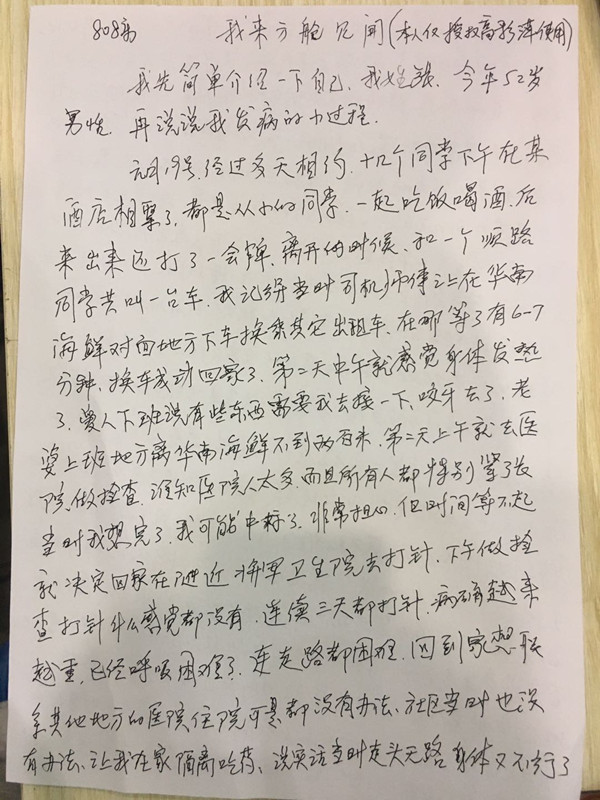 808房 我来方舱见闻(本人仅授权高影泽使用)
我先简单介绍一下自己. 我姓张. 今年52岁
男性. 再说说我发病的小过程.
元月19号. 经过多天相约. 十几个同学下午在某
酒店相聚了. 都是从小的同学. 一起吃饭喝酒. 后
来出来还打了一会牌. 离开的时候. 和一个顺路
同学共叫一台车. 我记得当时司机师傅让在华南
海鲜对面地方下车换乘其它出租车. 在哪等了有6-7
分钟. 换车成功回家了. 第二天中午就感觉身体发热
了. 爱人下班说有些东西需要我去接一下. 咬牙去了. 老
婆上班地方离华南海鲜不到两百米. 第二天上午就去医
院做检查. 谁知医院人太多. 而且所有人都特别紧张
当时我想完了. 我可能中标了. 非常担心. 但时间等不起
就决定回家在附近将军卫生院去打针. 下午做检
查打针什么感觉都没有. 连续三天都打针. 病情越来
越重. 已经呼吸困难了. 连走路都困难. 回到家想联
系其他地方的医院住院可是都没有办法. 社区当时也没
有办法. 让我在家隔离吃药. 说实话当时走头无路 身体又不行了